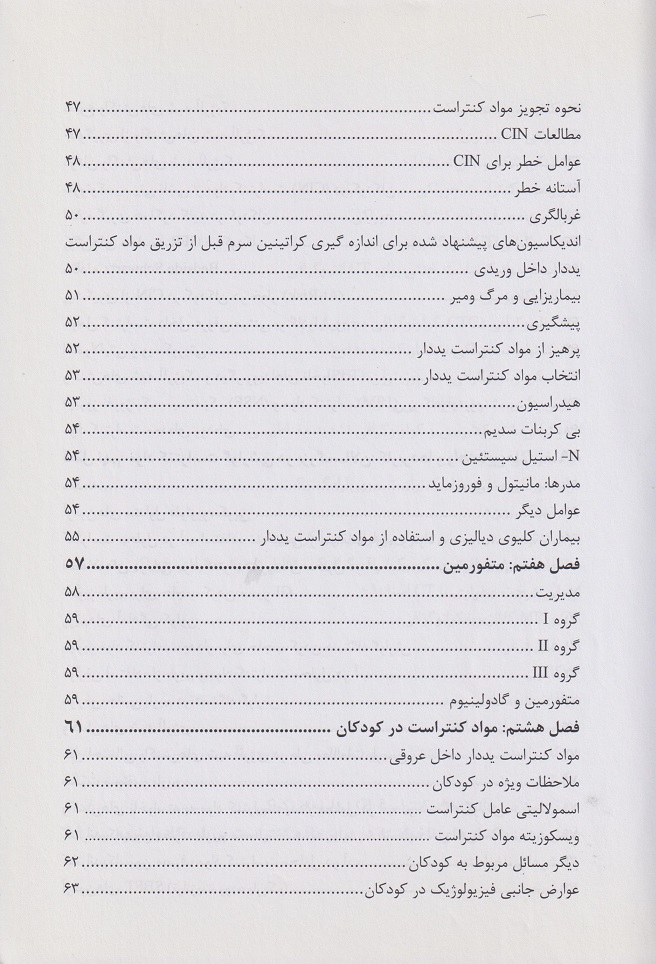 نحوه تجویز مواد کنتراست................................................................۴۷
مطالعات CIN ................................................................۴۷
عوامل خطر برای CIN ................................................................۴۸
آستانه خطر ................................................................۴۸
غربالگری ................................................................۵۰
اندیکاسیون‌های پیشنهاد شده برای اندازه گیری کراتینین سرم قبل از تزریق مواد کنتراست
یددار داخل وریدی ................................................................۵۰
بیماریزایی و مرگ ومیر ................................................................۵۱
پیشگیری................................................................۵۲
پرهیز از مواد کنتراست یددار ................................................................۵۲
انتخاب مواد کنتراست یددار................................................................۵۳
هیدراسیون................................................................۵۳
بی کربنات سدیم................................................................۵۴
N- استیل سیستئین ................................................................۵۴
مدرها: مانیتول و فوروزماید................................................................۵۴
عوامل دیگر ................................................................۵۴
بیماران کلیوی دیالیزی و استفاده از مواد کنتراست یددار ................................................................۵۵
فصل هفتم: متفورمین ................................................................۵۷
مدیریت................................................................۵۸
گروه I ................................................................۵۹
گروه II ................................................................۵۹
گروه III ................................................................۵۹
متفورمین و گادولینیوم ................................................................۵۹
فصل هشتم: مواد کنتراست در کودکان ................................................................۶۱
مواد کنتراست یددار داخل عروقی................................................................۶۱
ملاحظات ویژه در کودکان................................................................۶۱
اسمولالیتی عامل کنتراست ................................................................۶۱
ویسکوزیته مواد کنتراست ................................................................۶۱
دیگر مسائل مربوط به کودکان................................................................۶۲
عوارض جانبی فیزیولوژیک در کودکان................................................................۶۳